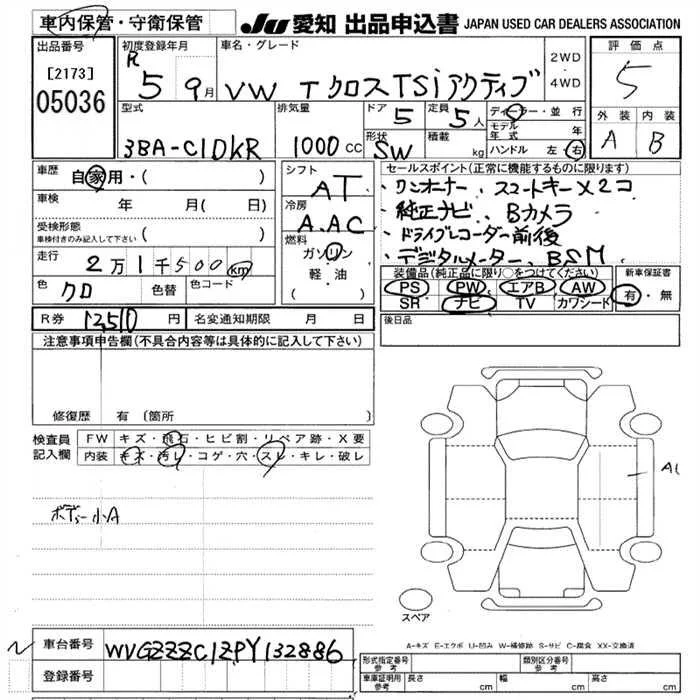 車内保管・守衛保管
JU 愛知 出品申込書 JAPAN USED CAR DEALERS ASSOCIATION
出品番号 [2173] 05036
初度登録年月 R 5 9月
車名・グレード VW TクロスTSiアクティブ
2WD・4WD
評価点 5
外装 内装
A B
型式 3BA-C1DKR
排気量 1000 CC
ドア 5
定員 5人
形状 SW
積載 kg
ディーラー・並行
モデル年式 年
ハンドル 左・右
車歴 自家用・( )
車検 年 月( 日)
受検形態 車検付きのみ記入して下さい ( )
走行 2万1千500km
色 クロ 色替 色コード
シフト AT
冷房 A.AC
燃料 ガソリン
軽・油
( )
セールスポイント(正常に機能するものに限ります)
・ワンオーナー、スマートキー×2コ
・純正ナビ、Bカメラ
・ドライブレコーダー前後
・デジタルメーター、BSM
装備品(純正品に限り○をつけてください)
PS PW エアB AW
SR ナビ TV カワシード
新車保証書
有・無
R券 12510円 名変通知期限 月 日
後日品
注意事項申告欄(不具合内容等は具体的に記入して下さい)
修復歴 有(箇所
検査員記入欄
FW キズ・飛石・ヒビ割・リペア跡・X要
内装 キズ・汚レ・コゲ・穴・スレ・キレ・破レ
ボデー小A
A1
スペア
A-キズ E-エクボ U-凹み W-補修跡 S-サビ C-腐食 XX-交換済
車台番号 WVGZZZC1ZPY132886
登録番号
形式指定番号 参考
類別区分番号 参考
車庫証明用 参考 長さ cm 幅 cm 高さ cm